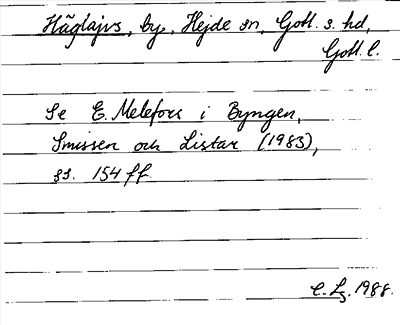 Häglajvs, by, Hejde sn, Gotl. s. hd,
Gotl. l.
Se E. Melefors i Byngen,
Smissen och Listar (1983),
ss. 154 ff.
C. Lg. 1988.